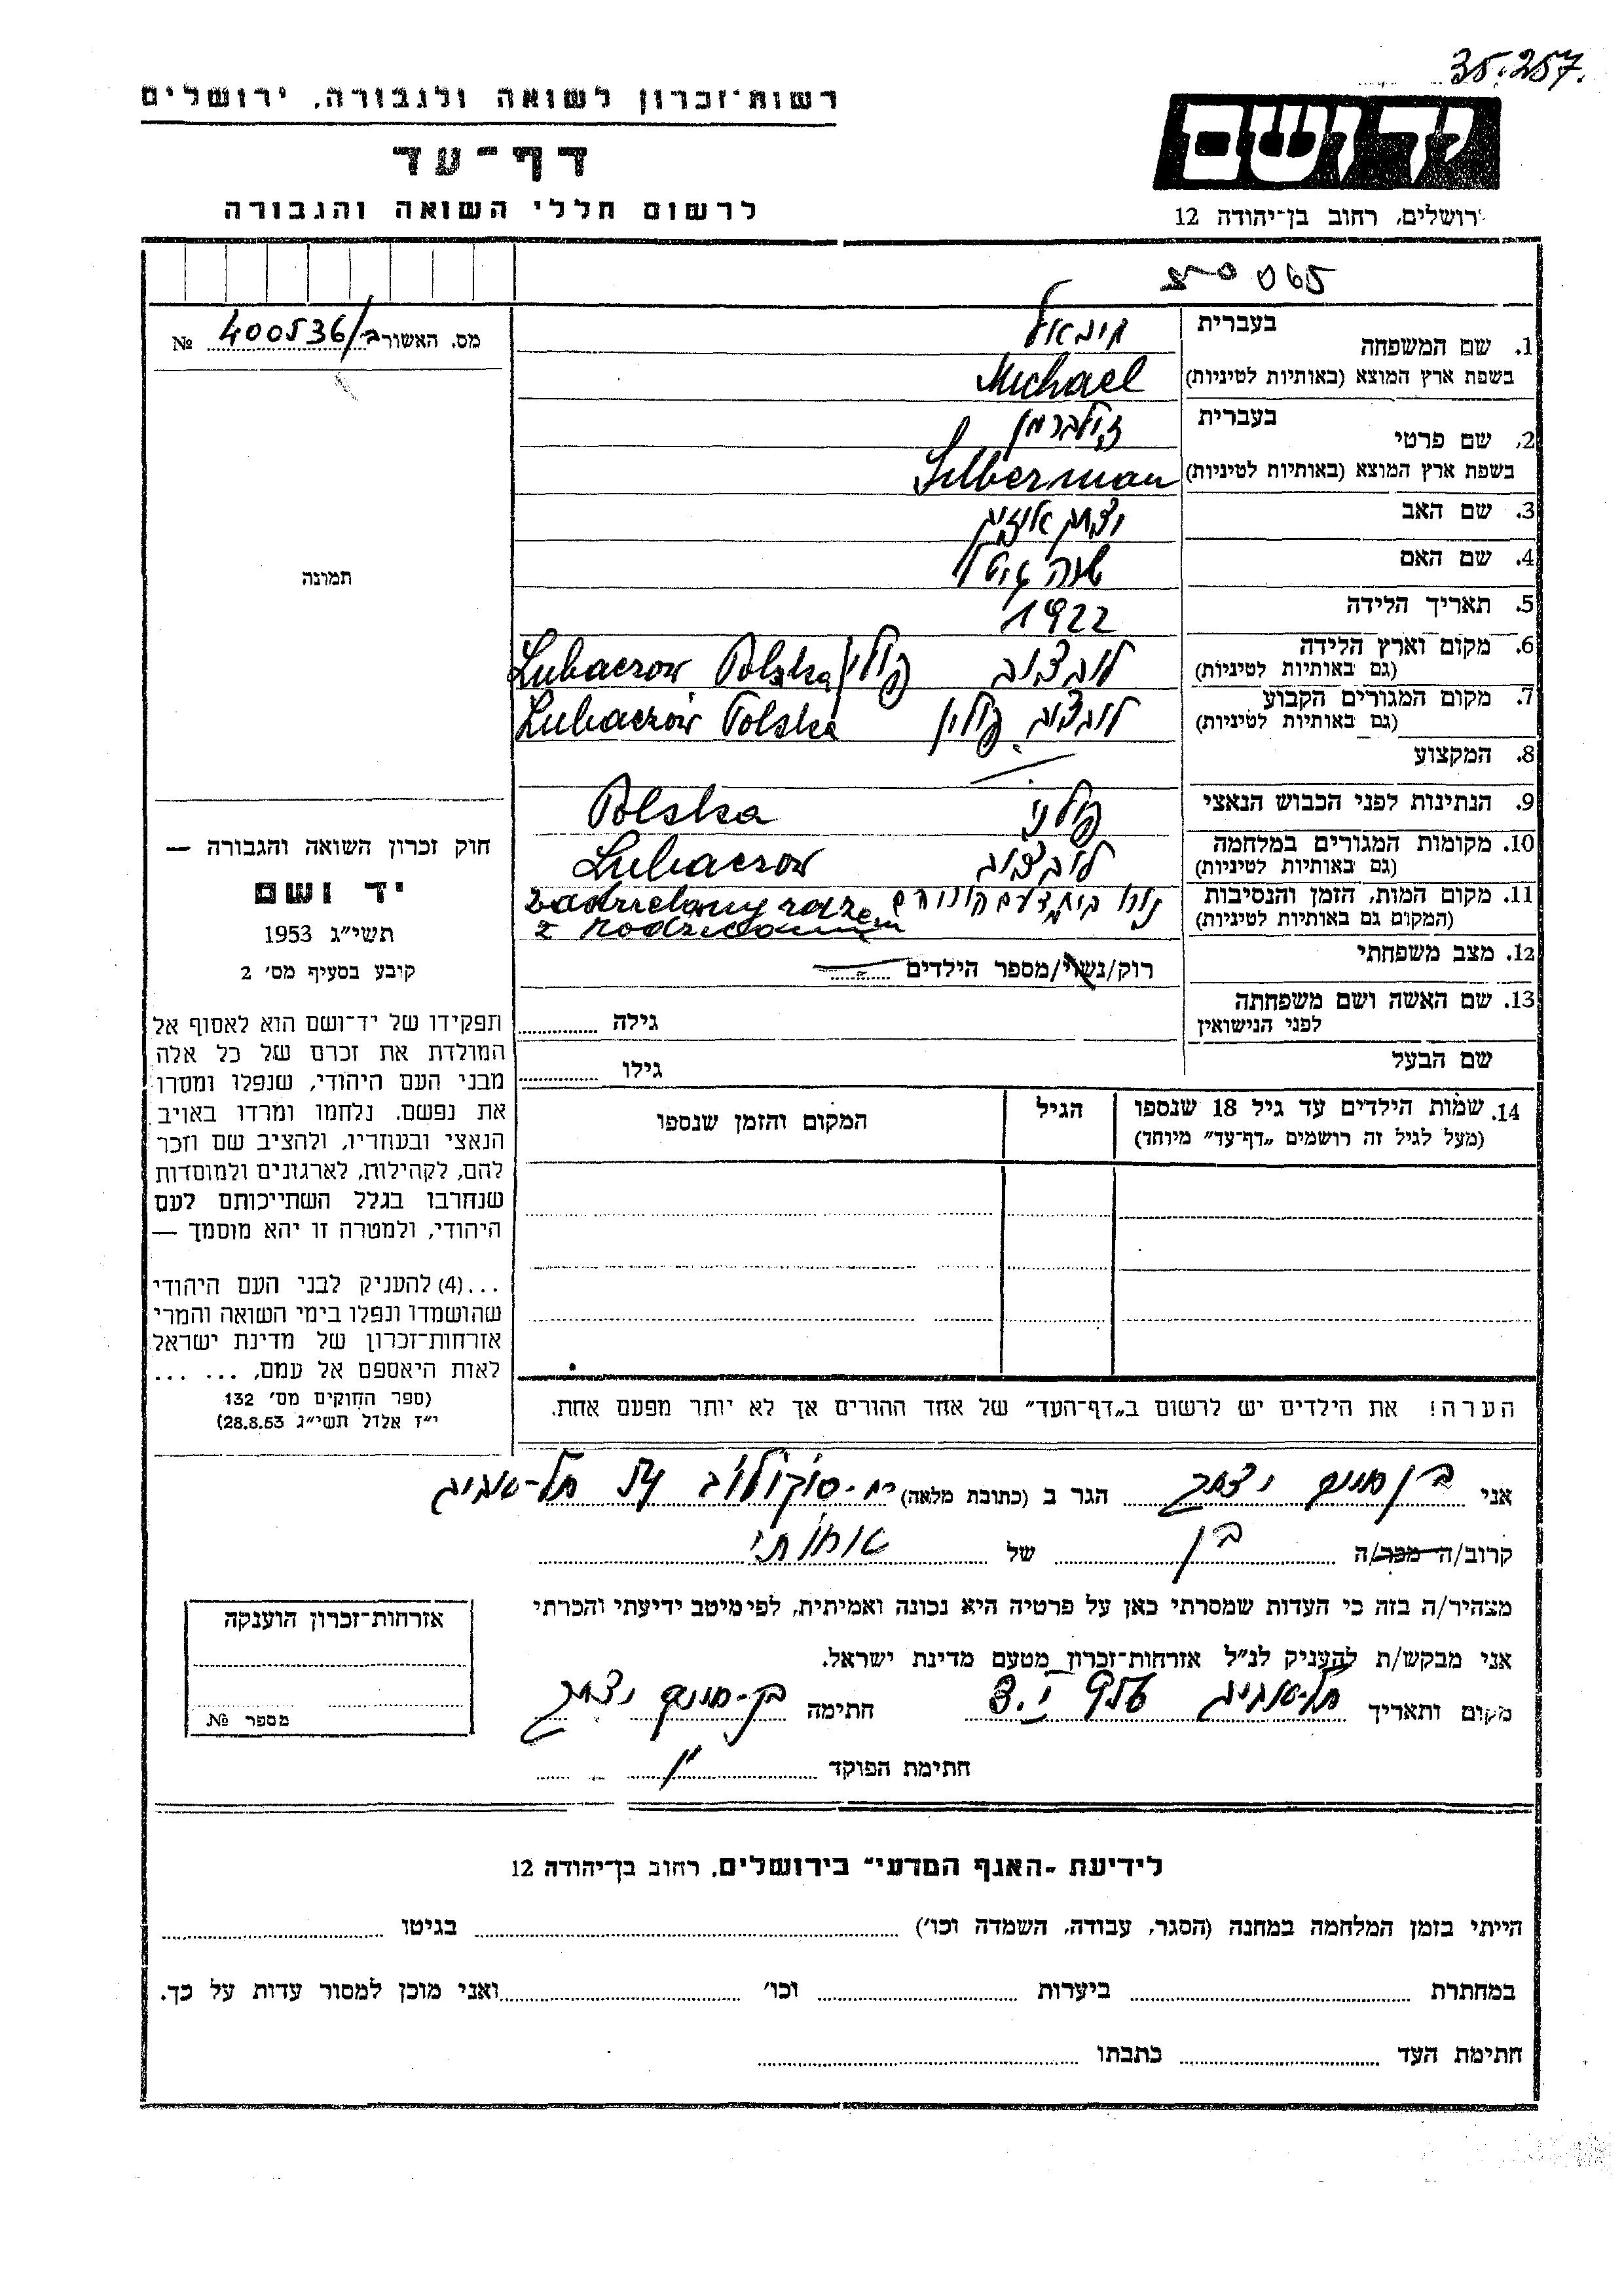 35.257.
רשות־זכרון לשואה ולגבורה, ירושלים
דף־עד
לרשום חללי השואה והגבורה
יד ושם
ירושלים, רחוב בן־יהודה 12
065
מס. האשור ב/400536 №
תמונה
1. שם המשפחה
בעברית
מיכאל
בשפת ארץ המוצא (באותיות לטיניות)
Michael
2. שם פרטי
בעברית
זילברמן
בשפת ארץ המוצא (באותיות לטיניות)
Silberman
3. שם האב
יצחק
4. שם האם
שרה גיטל
5. תאריך הלידה
1922
6. מקום וארץ הלידה
(גם באותיות לטיניות)
לובצוב פולין Lubaczow Polska
7. מקום המגורים הקבוע
(גם באותיות לטיניות)
לובצוב פולין Lubaczów Polska
8. המקצוע
9. הנתינות לפני הכבוש הנאצי
פולני Polska
10. מקומות המגורים במלחמה
(גם באותיות לטיניות)
לובצוב Lubaczow
11. מקום המות, הזמן והנסיבות
(המקום גם באותיות לטיניות)
נורו ביחד עם ההורים Zastrzelony razem
z Rodzicami
12. מצב משפחתי
רוק/נשוי/מספר הילדים
13. שם האשה ושם משפחתה
לפני הנישואין
גילה
שם הבעל
גילו
14. שמות הילדים עד גיל 18 שנספו
(מעל לגיל זה רושמים „דף־עד" מיוחד)
הגיל
המקום והזמן שנספו
הערה! את הילדים יש לרשום ב„דף־העד" של אחד ההורים אך לא יותר מפעם אחת.
חוק זכרון השואה והגבורה —
יד ושם
תשי"ג 1953
קובע בסעיף מס׳ 2
תפקידו של יד־ושם הוא לאסוף אל
המולדת את זכרם של כל אלה
מבני העם היהודי, שנפלו ומסרו
את נפשם, נלחמו ומרדו באויב
הנאצי ובעוזריו, ולהציב שם וזכר
להם, לקהילות, לארגונים ולמוסדות
שנחרבו בגלל השתייכותם לעם
היהודי, ולמטרה זו יהא מוסמך —
...(4) להעניק לבני העם היהודי
שהושמדו ונפלו בימי השואה והמרי
אזרחות־זכרון של מדינת ישראל
לאות היאספם אל עמם, ... ...
(ספר החוקים מס׳ 132
י"ז אלול תשי"ג 28.8.53)
אני יצחק הגר ב (כתובת מלאה) רח. סוקולוב תל-אביב
קרוב/ה מכר/ה בן של אחותי
מצהיר/ה בזה כי העדות שמסרתי כאן על פרטיה היא נכונה ואמיתית, לפי מיטב ידיעתי והכרתי
אני מבקש/ת להעניק לנ"ל אזרחות־זכרון מטעם מדינת ישראל.
מקום ותאריך תל-אביב חתימה יצחק
חתימת הפוקד
אזרחות־זכרון הוענקה
מספר №
לידיעת „האגף המדעי" בירושלים, רחוב בן־יהודה 12
הייתי בזמן המלחמה במחנה (הסגר, עבודה, השמדה וכו׳) בגיטו
במחתרת ביערות וכו׳ ואני מוכן למסור עדות על כך.
חתימת העד כתבתו